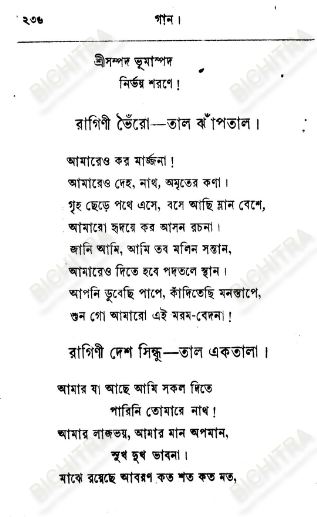 ২৩৬ গান।
শ্রীসম্পদ ভূমাস্পদ
নির্ভয় শরণে!
রাগিণী ভৈঁরো—তাল ঝাঁপতাল।
আমারেও কর মার্জ্জনা!
আমারেও দেহ, নাথ, অমৃতের কণা।
গৃহ ছেড়ে পথে এসে, বসে আছি ম্লান বেশে,
আমারো হৃদয়ে কর আসন রচনা।
জানি আমি, আমি তব মলিন সন্তান,
আমারেও দিতে হবে পদতলে স্থান।
আপনি ডুবেছি পাপে, কাঁদিতেছি মনস্তাপে,
শুন গো আমারো এই মরম-বেদনা!
রাগিণী দেশ সিন্ধু—তাল একতালা।
আমার যা আছে আমি সকল দিতে
পারিনি তোমারে নাথ!
আমার লাজভয়, আমার মান অপমান,
সুখ দুখ ভাবনা।
মাঝে রয়েছে আবরণ কত শত কত মত,
BICHITRA